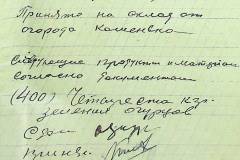 Принято на склад от
огорода Каменка
Следующие продукты и материал
согласно документам
(400) Четыреста кгр.
зеленых огурцов
Сдал
Принял